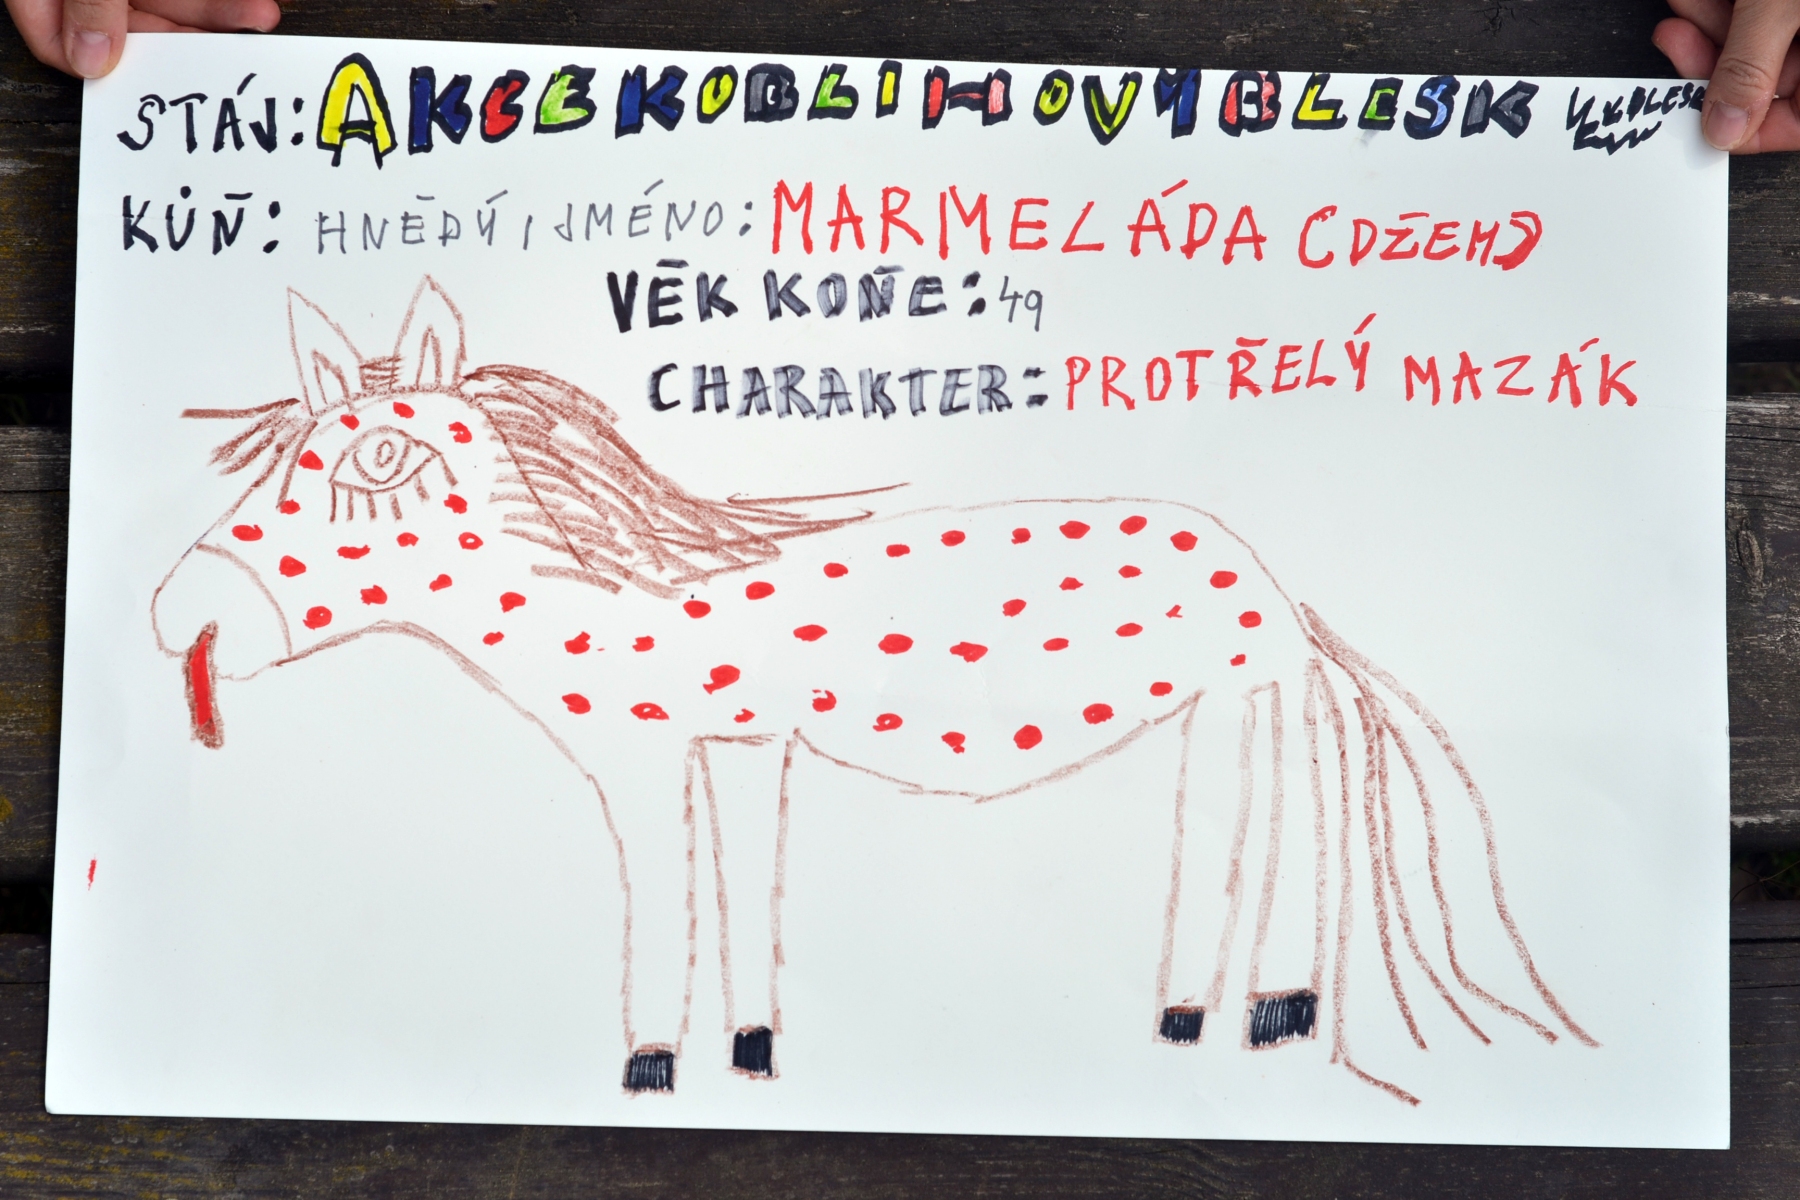 STÁJ: AKCE KOBLIHOVÝ BLESK
KŮŇ: HNĚDÝ, JMÉNO: MARMELÁDA (DŽEM)
VĚK KOŇE: 49
CHARAKTER: PROTŘELÝ MAZÁK